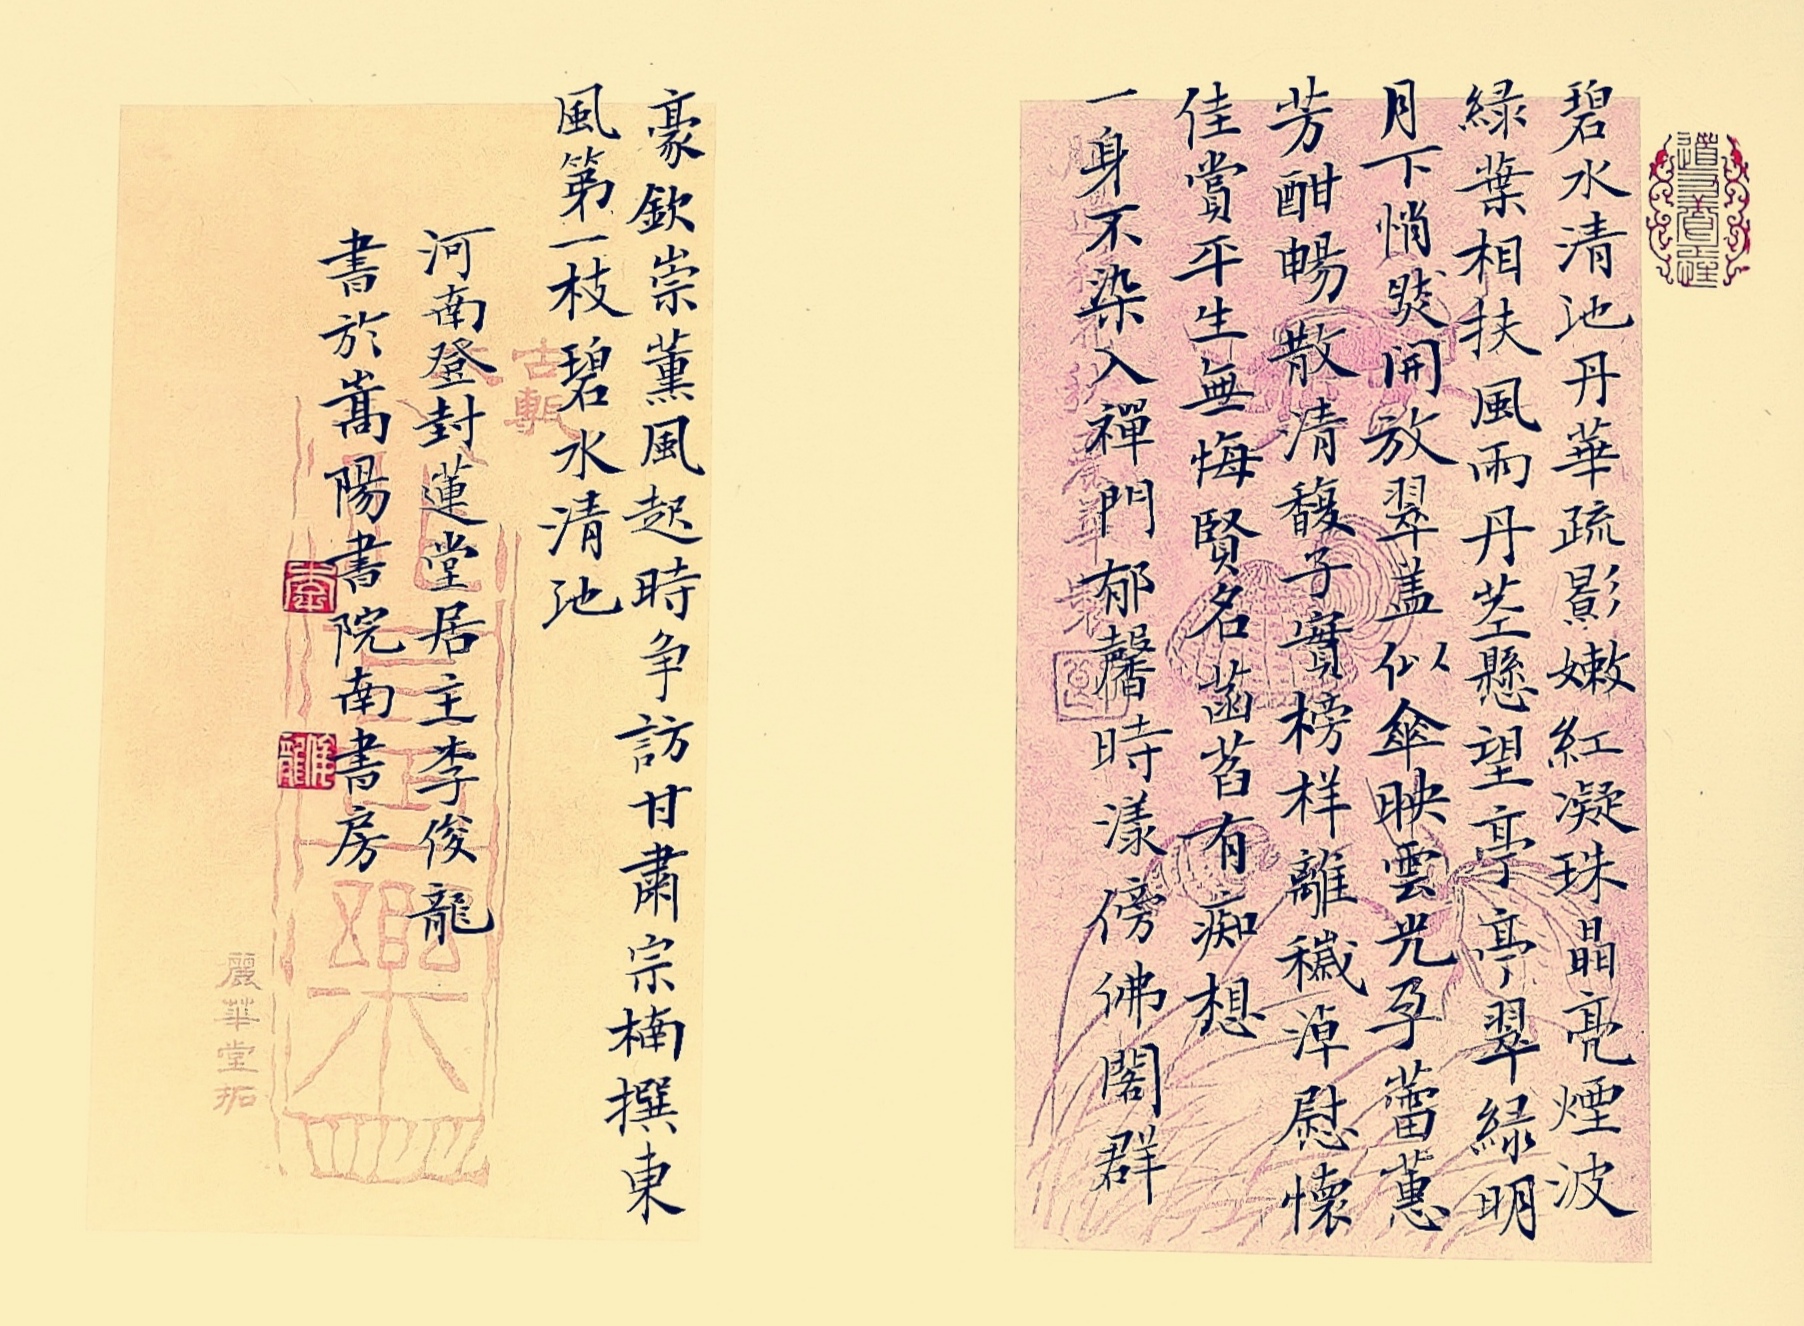 碧水清池丹華疏影嫩紅凝珠晶亮煙波
緑葉相扶風雨丹茎懸望亭亭翠緑明
月下悄然開放翠盖似傘映雲光孕蕾蕙
芳酣暢散清馥子實榜样離穢淖慰懷
佳賞平生無悔賢名菡萏有痴想
一身不染入禪門郁馨時漾傍佛閣群
豪欽崇薰風起時争訪甘肅宗楠撰東
風第一枝碧水清池
河南登封蓮堂居主李俊龍
書於嵩陽書院南書房
古甎
麗華堂拓
李
俊龍